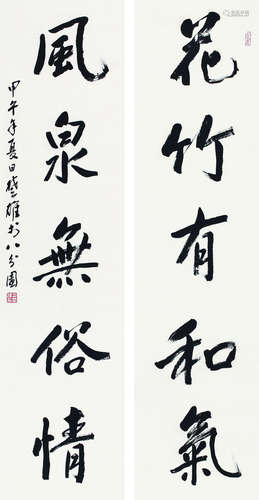 花竹有和氣
風泉無俗情
甲午年夏日楚雄於八分園